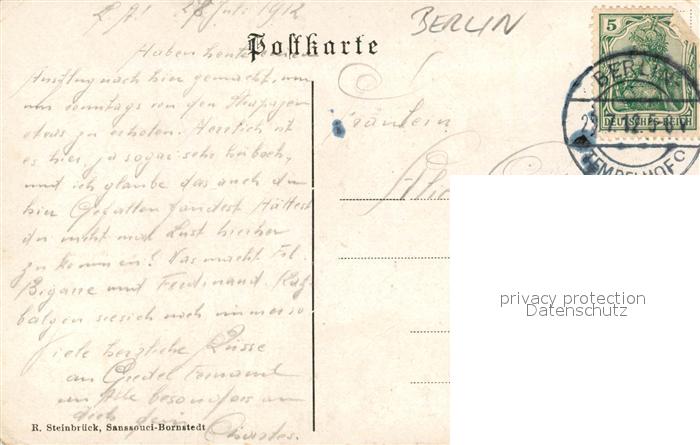 L. A! 28 Juli 1912
Haben heute einen
Ausflug nach hier gemacht, um
uns Sonntags von den Strapazen
etwas zu erholen. Herrlich ist
es hier, ja sogar sehr hübsch,
und ich glaube das auch du
hier Gefallen fändest. Hättest
du nicht mal Lust hierher
zu kommen? Was macht Frl.
und Ferdinand.
balgen sie sich noch immer so
Viele herzliche Küsse
an Gretel
an Alle besonders an
dich dein
Charles.
R. Steinbrück, Sanssouci-Bornstedt
BERLIN
Postkarte
5
DEUTSCHES REICH
BERLIN
TEMPELHOF
Fräulein
privacy protection
Datenschutz